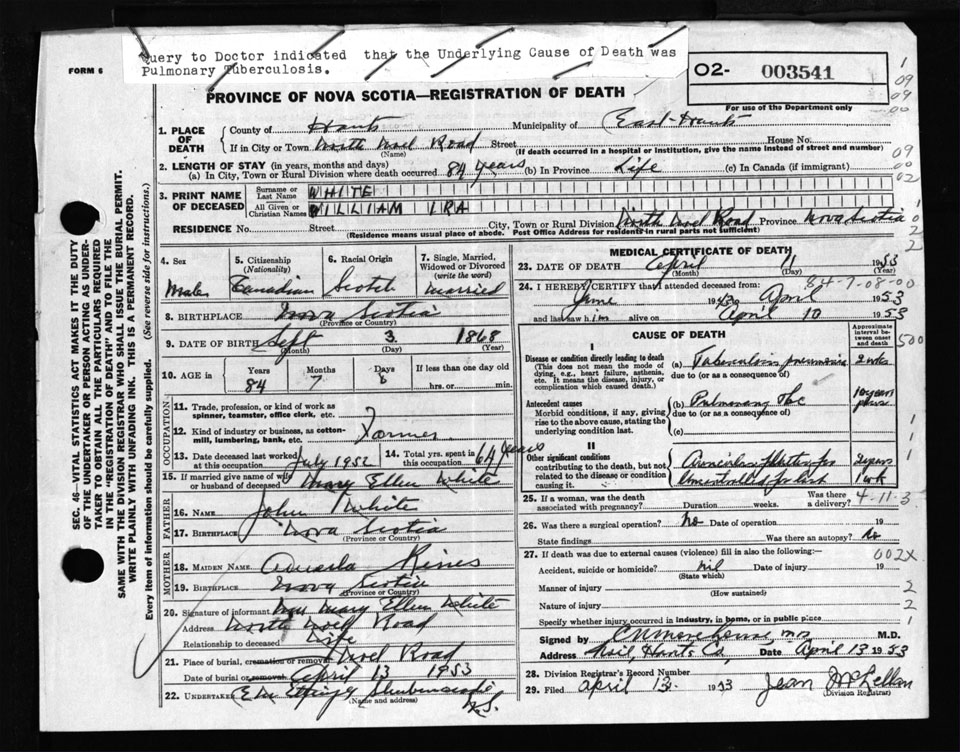 Query to Doctor indicated that the Underlying Cause of Death was
Pulmonary Tuberculosis.
FORM 6
O2- 003541
For use of the Department only
PROVINCE OF NOVA SCOTIA—REGISTRATION OF DEATH
1. PLACE OF DEATH
County of Hants Municipality of East-Hants
If in City or Town North Noel Road Street House No.
(Name) (If death occurred in a hospital or institution, give the name instead of street and number)
2. LENGTH OF STAY (in years, months and days)
(a) In City, Town or Rural Division where death occurred 84 years (b) In Province Life (c) In Canada (if immigrant)
3. PRINT NAME OF DECEASED
Surname or Last Name WHITE
All Given or Christian Names WILLIAM IRA
RESIDENCE No. Street City, Town or Rural Division North Noel Road Province Nova Scotia
(Residence means usual place of abode. Post Office Address for residents in rural parts not sufficient)
4. Sex
Male
5. Citizenship
(Nationality)
Canadian
6. Racial Origin
Scotch
7. Single, Married, Widowed or Divorced
(write the word)
Married
8. BIRTHPLACE Nova Scotia
(Province or Country)
9. DATE OF BIRTH Sept 3 1868
(Month) (Day) (Year)
10. AGE in
Years Months Days If less than one day
84 7 8 hrs. or min.
OCCUPATION
11. Trade, profession, or kind of work as spinner, teamster, office clerk, etc.
12. Kind of industry or business, as cotton-mill, lumbering, bank, etc.
Farmer
13. Date deceased last worked at this occupation July 1952
14. Total yrs. spent in this occupation 64 years
15. If married give name of wife or husband of deceased Mary Ellen White
FATHER
16. Name John White
17. Birthplace Nova Scotia
(Province or Country)
MOTHER
18. MAIDEN NAME Rines
19. BIRTHPLACE Nova Scotia
(Province or Country)
20. Signature of informant Mrs Mary Ellen White
Address North Noel Road
Relationship to deceased Wife
21. Place of burial, cremation or removal Noel Road
Date of burial or removal April 13 1953
22. Undertaker Shubenacadie
N.S.
(Name and address)
MEDICAL CERTIFICATE OF DEATH
23. DATE OF DEATH April 11 1953
(Month) (Day) (Year)
84-7-08-00
24. I HEREBY CERTIFY that I attended deceased from:
June to April 1953
and last saw him alive on April 10 1953
CAUSE OF DEATH
Approximate interval between onset and death
I
Disease or condition directly leading to death
(This does not mean the mode of dying, e.g., heart failure, asthenia, etc. It means the disease, injury, or complication which caused death.)
(a) Tuberculosis pneumonia 2 wks
due to (or as a consequence of)
Antecedent causes
Morbid conditions, if any, giving rise to the above cause, stating the underlying condition last.
(b) Pulmonary Tbc 10 years
due to (or as a consequence of)
(c)
II
Other significant conditions
contributing to the death, but not related to the disease or condition causing it.
Auricular 2 years
1 wk
25. If a woman, was the death associated with pregnancy? Duration weeks. Was there a delivery?
4-11-3
26. Was there surgical operation? No Date of operation 19
State findings Was there an autopsy? No
27. If death was due to external causes (violence) fill in also the following:—
002X
Accident, suicide or homicide? nil Date of injury 19
(State which)
Manner of injury
(How sustained)
Nature of injury
Specify whether injury occurred in industry, in home, or in public place
Signed by M.D.
Address Noel, Hants Co, Date April 13 1953
28. Division Registrar's Record Number
29. Filed April 13 1953 Jean McLellan
(Division Registrar)
SEC. 46—VITAL STATISTICS ACT MAKES IT THE DUTY
OF THE UNDERTAKER OR PERSON ACTING AS UNDER-
TAKER TO OBTAIN ALL THE PARTICULARS REQUIRED
IN THE "REGISTRATION OF DEATH" AND TO FILE THE
SAME WITH THE DIVISION REGISTRAR WHO SHALL ISSUE THE BURIAL PERMIT.
WRITE PLAINLY WITH UNFADING INK. THIS IS A PERMANENT RECORD.
Every item of information should be carefully supplied. (See reverse side for instructions.)